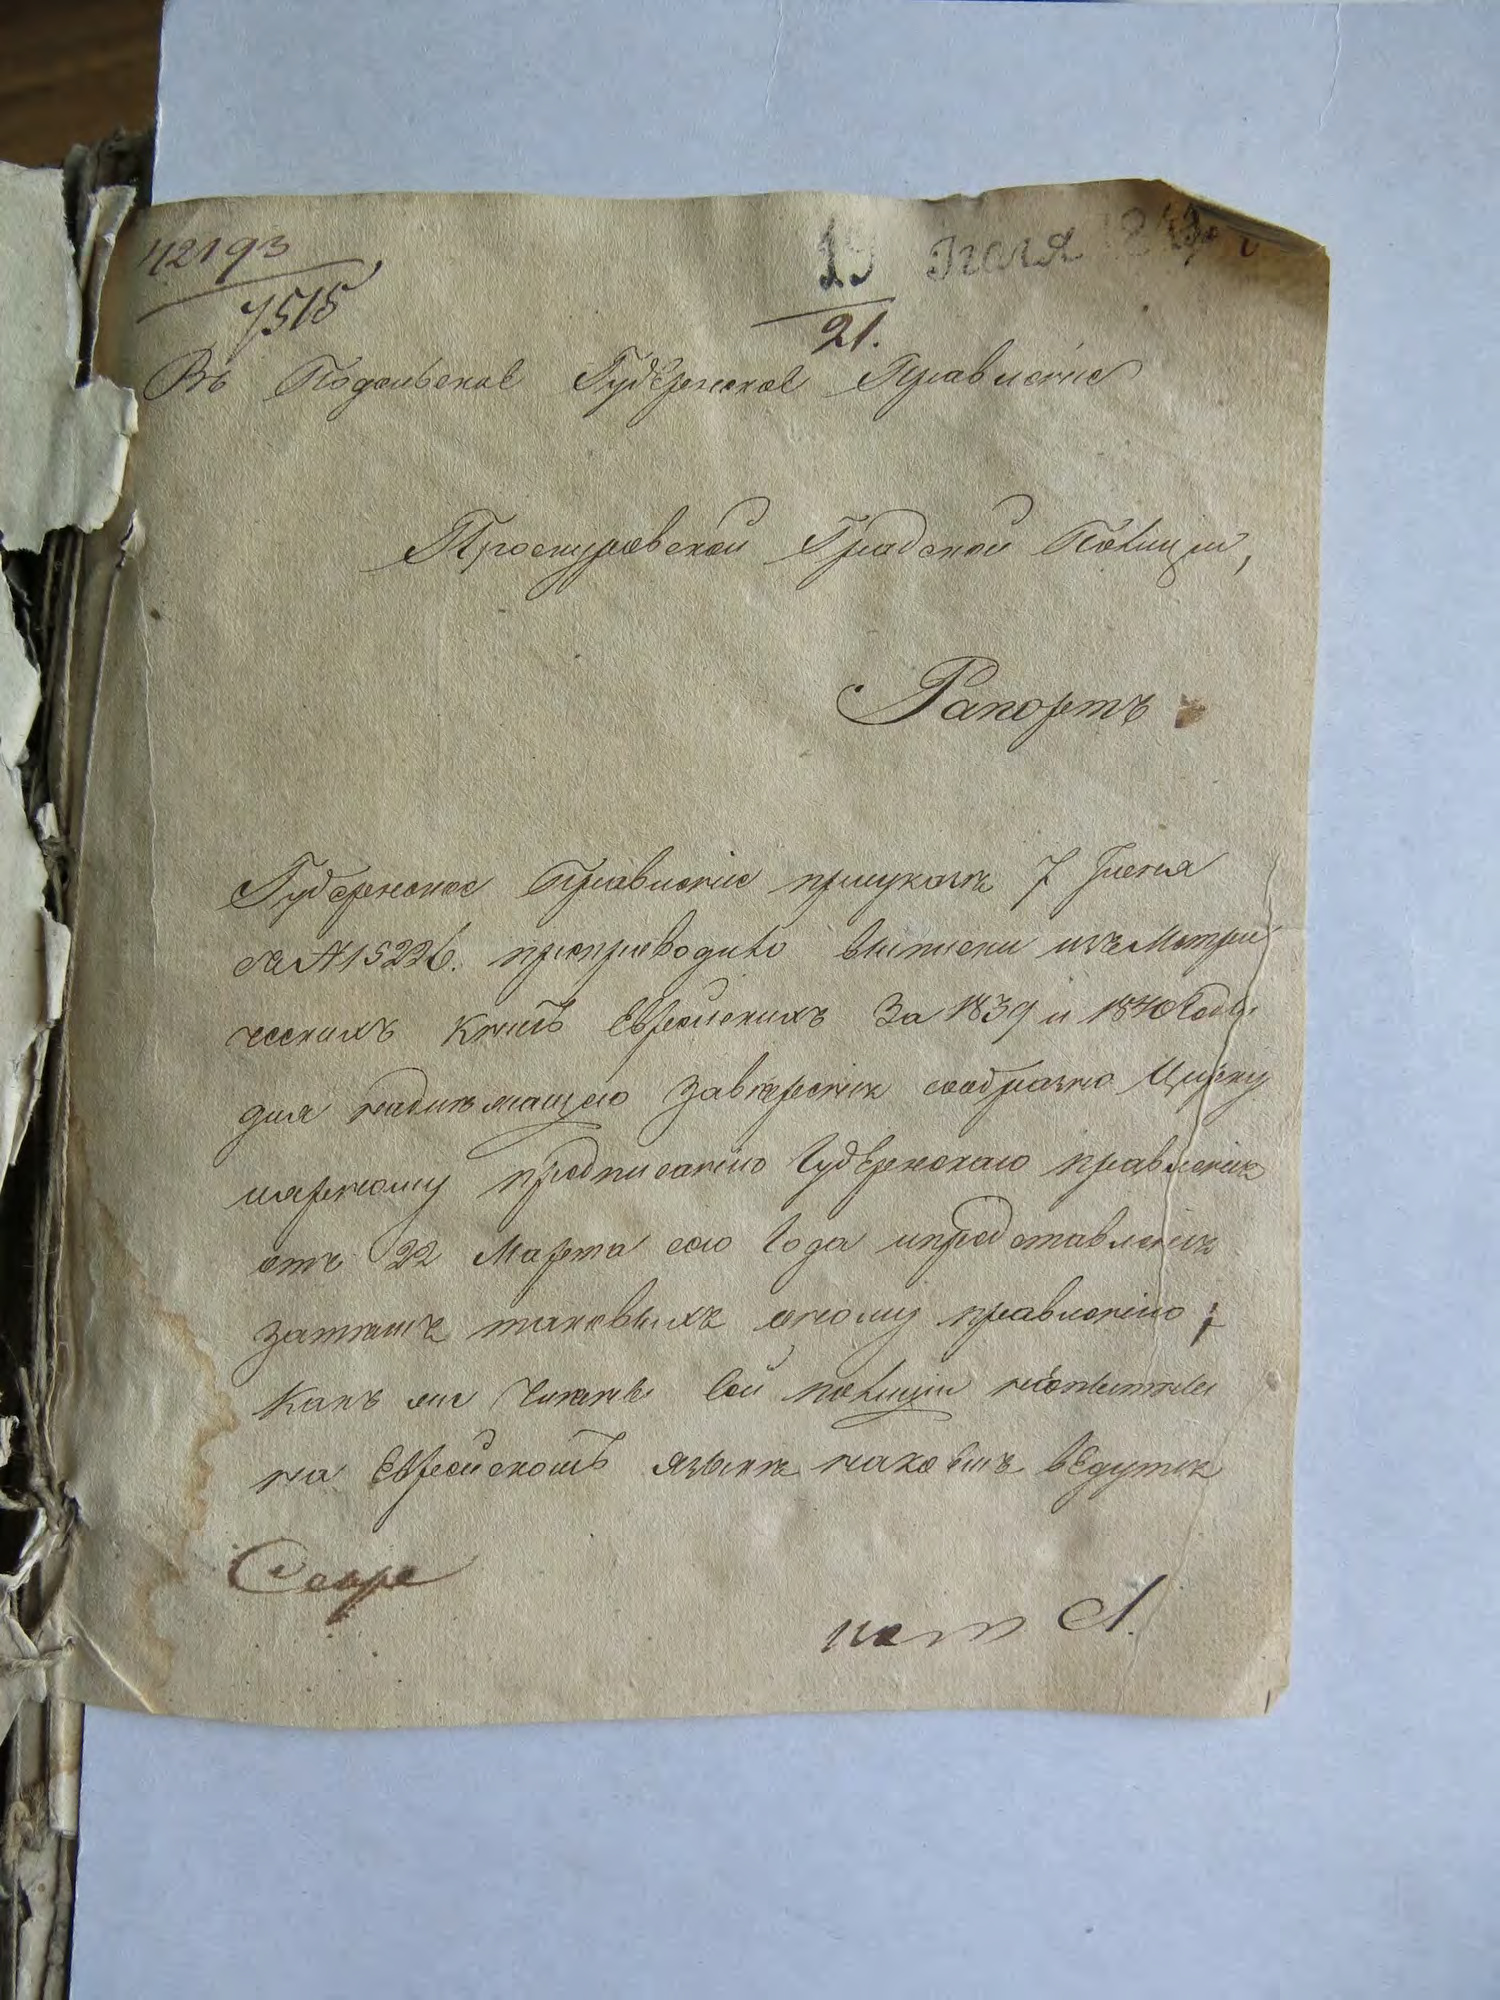 42193
7515
19 Июля 184
21.
Въ Подольское Губернское Правленіе
Проскуровской Градской Полиціи,
Рапортъ
Губернское Правленіе при указѣ 7 Іюня
за № 15226. препроводило выписки изъ Метри
ческихъ книгъ Еврейскихъ за 1839 и 1840 Годы
для надлежащаго завѣренія сообразно Цирку
лярному предписанію Губернскаго правленія
отъ 22 Марта сего Года и представленія
затѣмъ таковыхъ оному правленію;
какъ же Члены сей полиціи неопытны
на Еврейскомъ языкѣ на коемъ ведутся